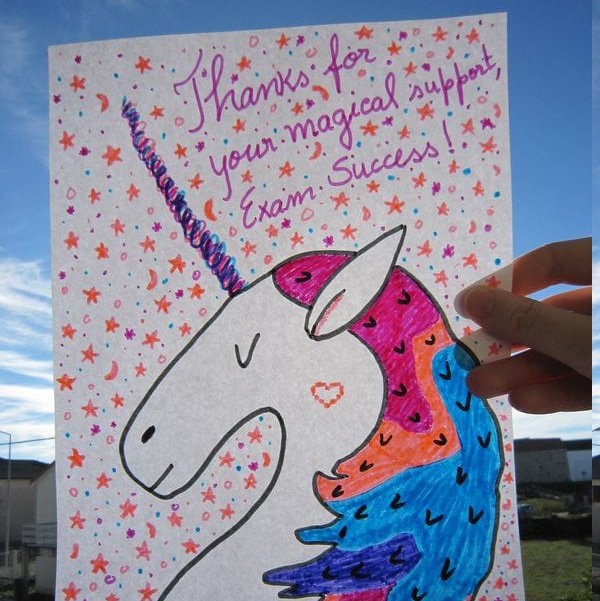 Thanks for
your magical support,
Exam Success!